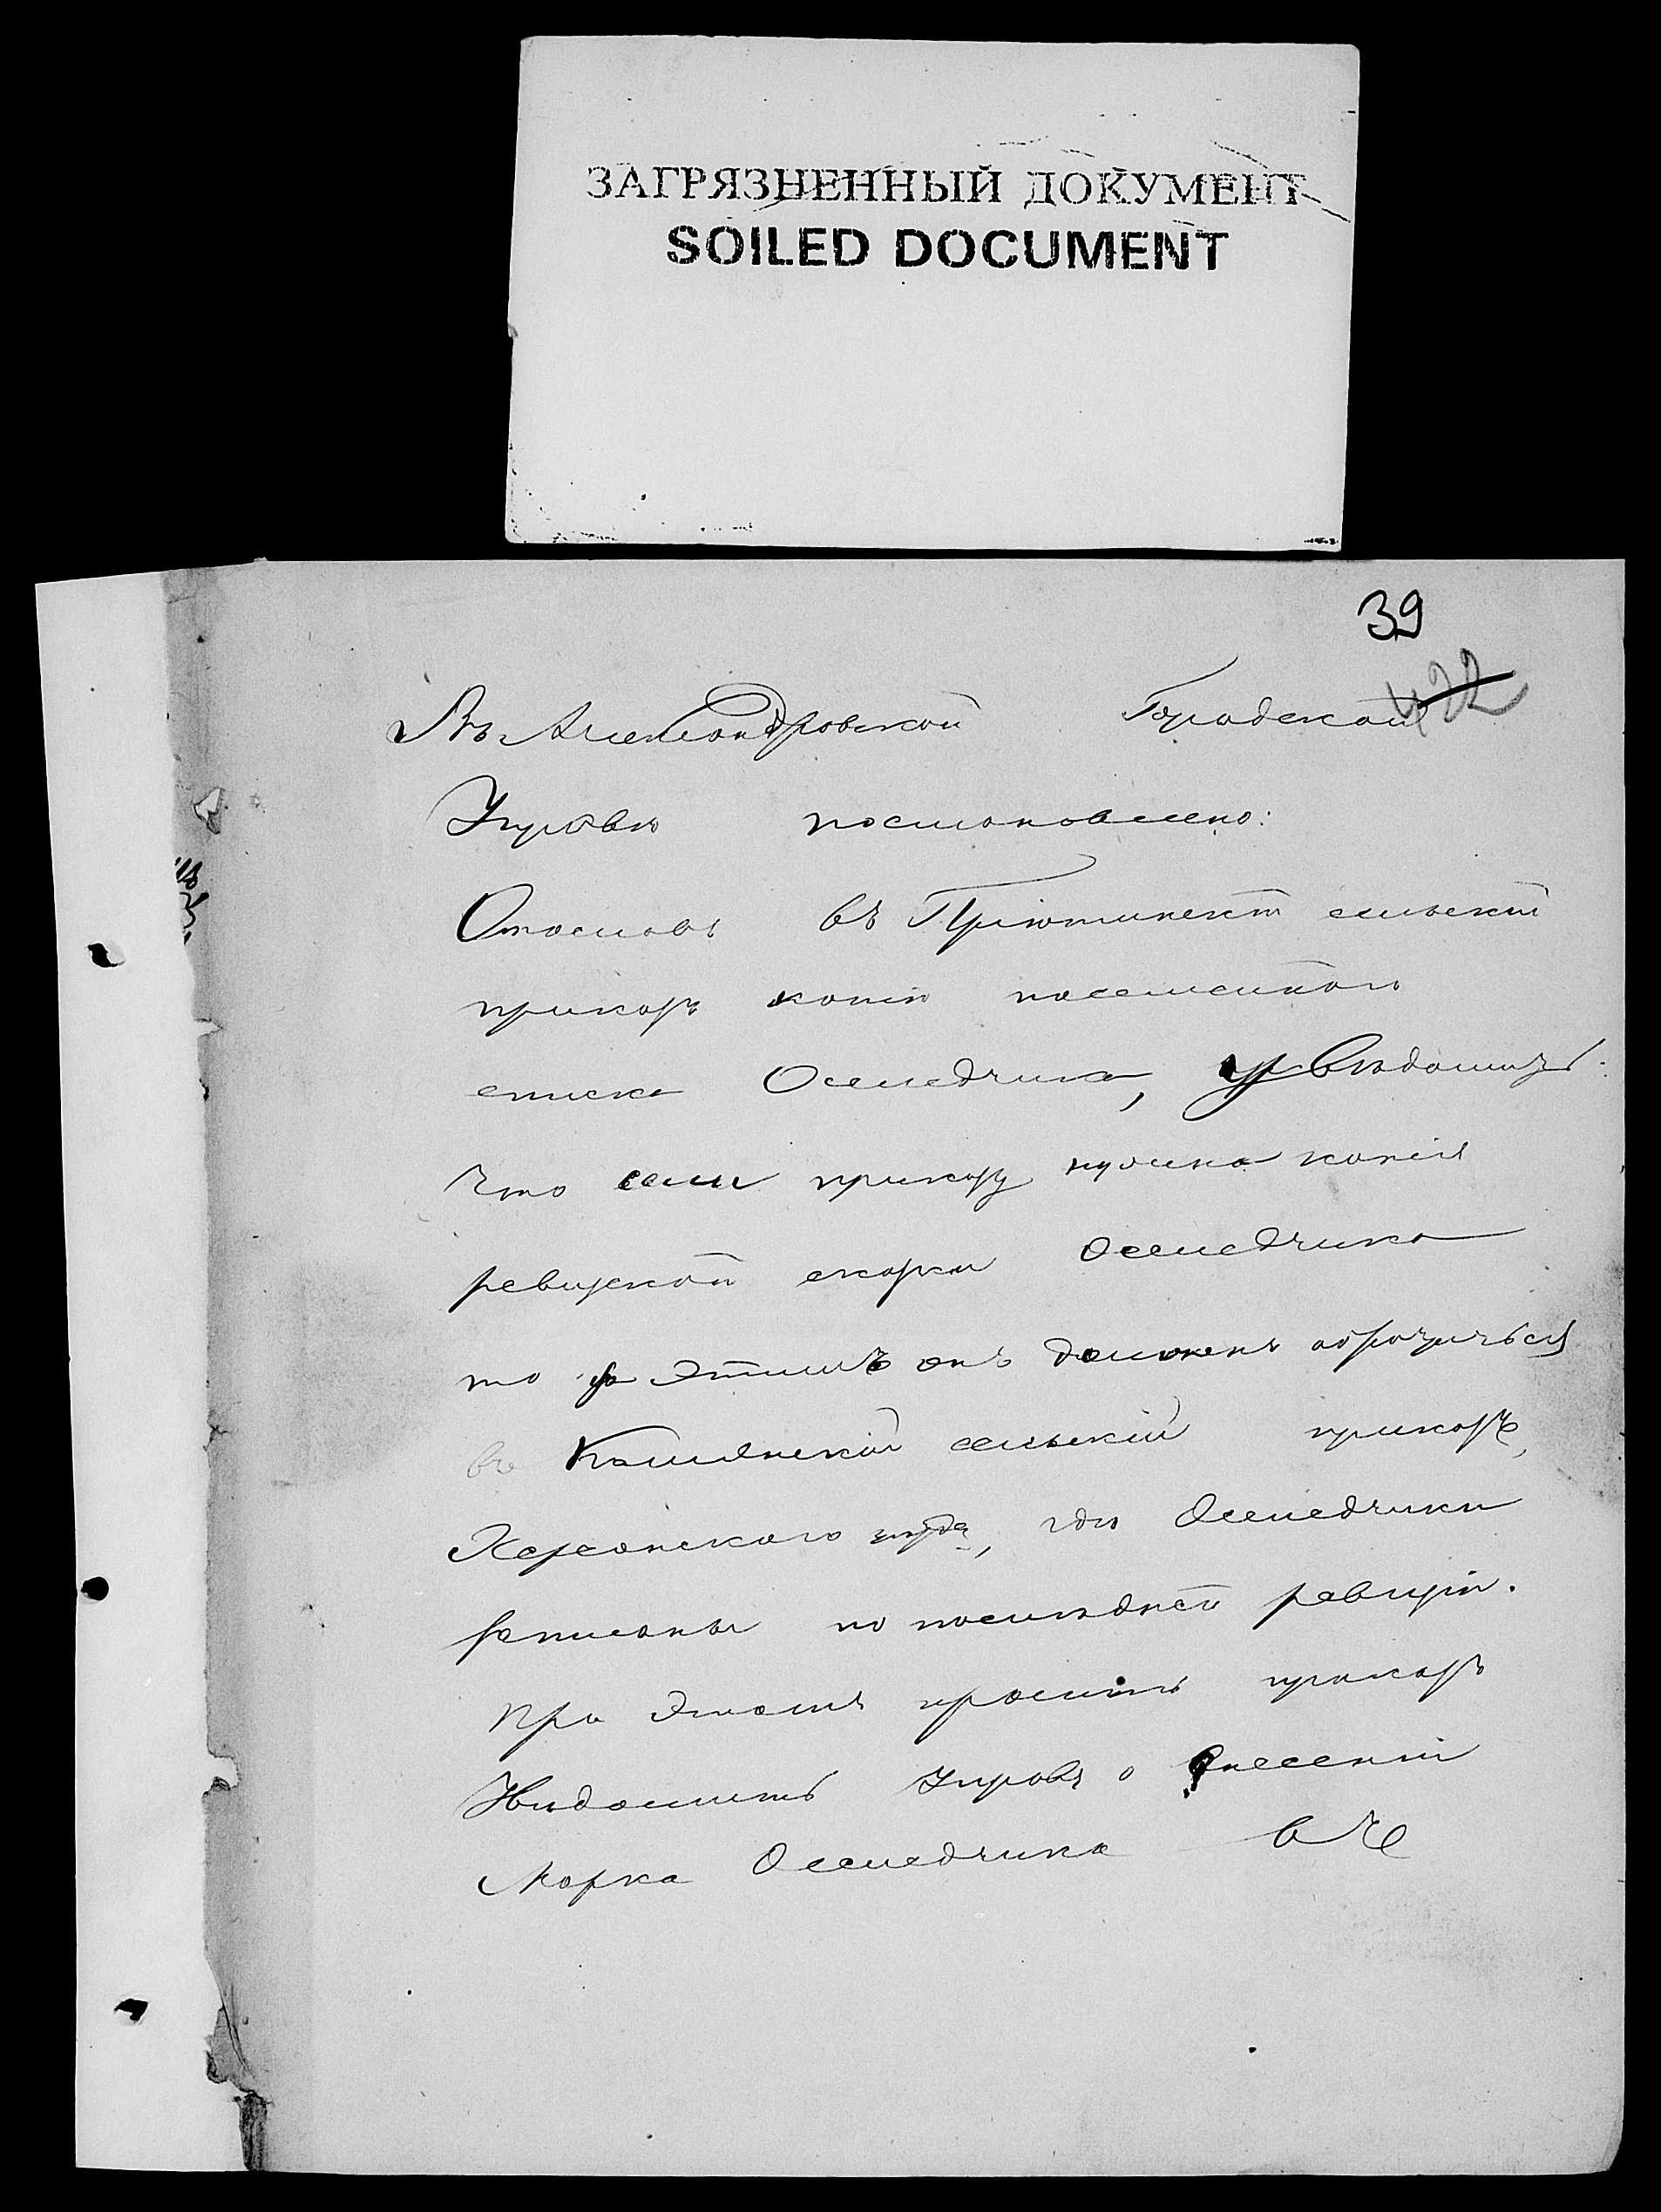 ЗАГРЯЗНЕННЫЙ ДОКУМЕНТ
SOILED DOCUMENT
39
422
Въ Александровской Городской
Управѣ постановлено:
Отославъ въ Пріютинскій сельскій
приказъ копію посемейнаго
списка Оселедчика, увѣдомить
что если приказу нужна копія
ревизской сказки Оселедчика
то за этимъ онъ долженъ обратиться
въ Камянскій сельскій приказъ,
Херсонскаго уѣзда, гдѣ Оселедчики
записаны по послѣдней ревизіи.
При этомъ просить приказъ
Увѣдомить Управу о внесеніи
Марка Оселедчика